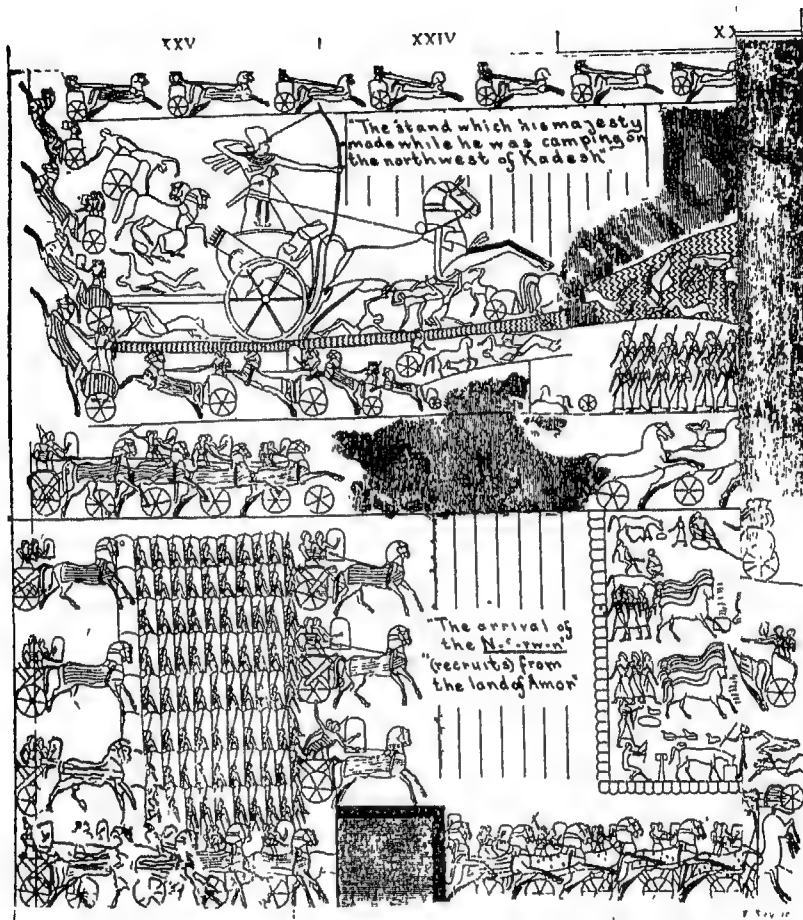 XXV
XXIV
XX
"The stand which his majesty
made while he was camping on
the northwest of Kadesh"
"The arrival of
the N-c-rwn"
"(recruits) from
the land of Amor"